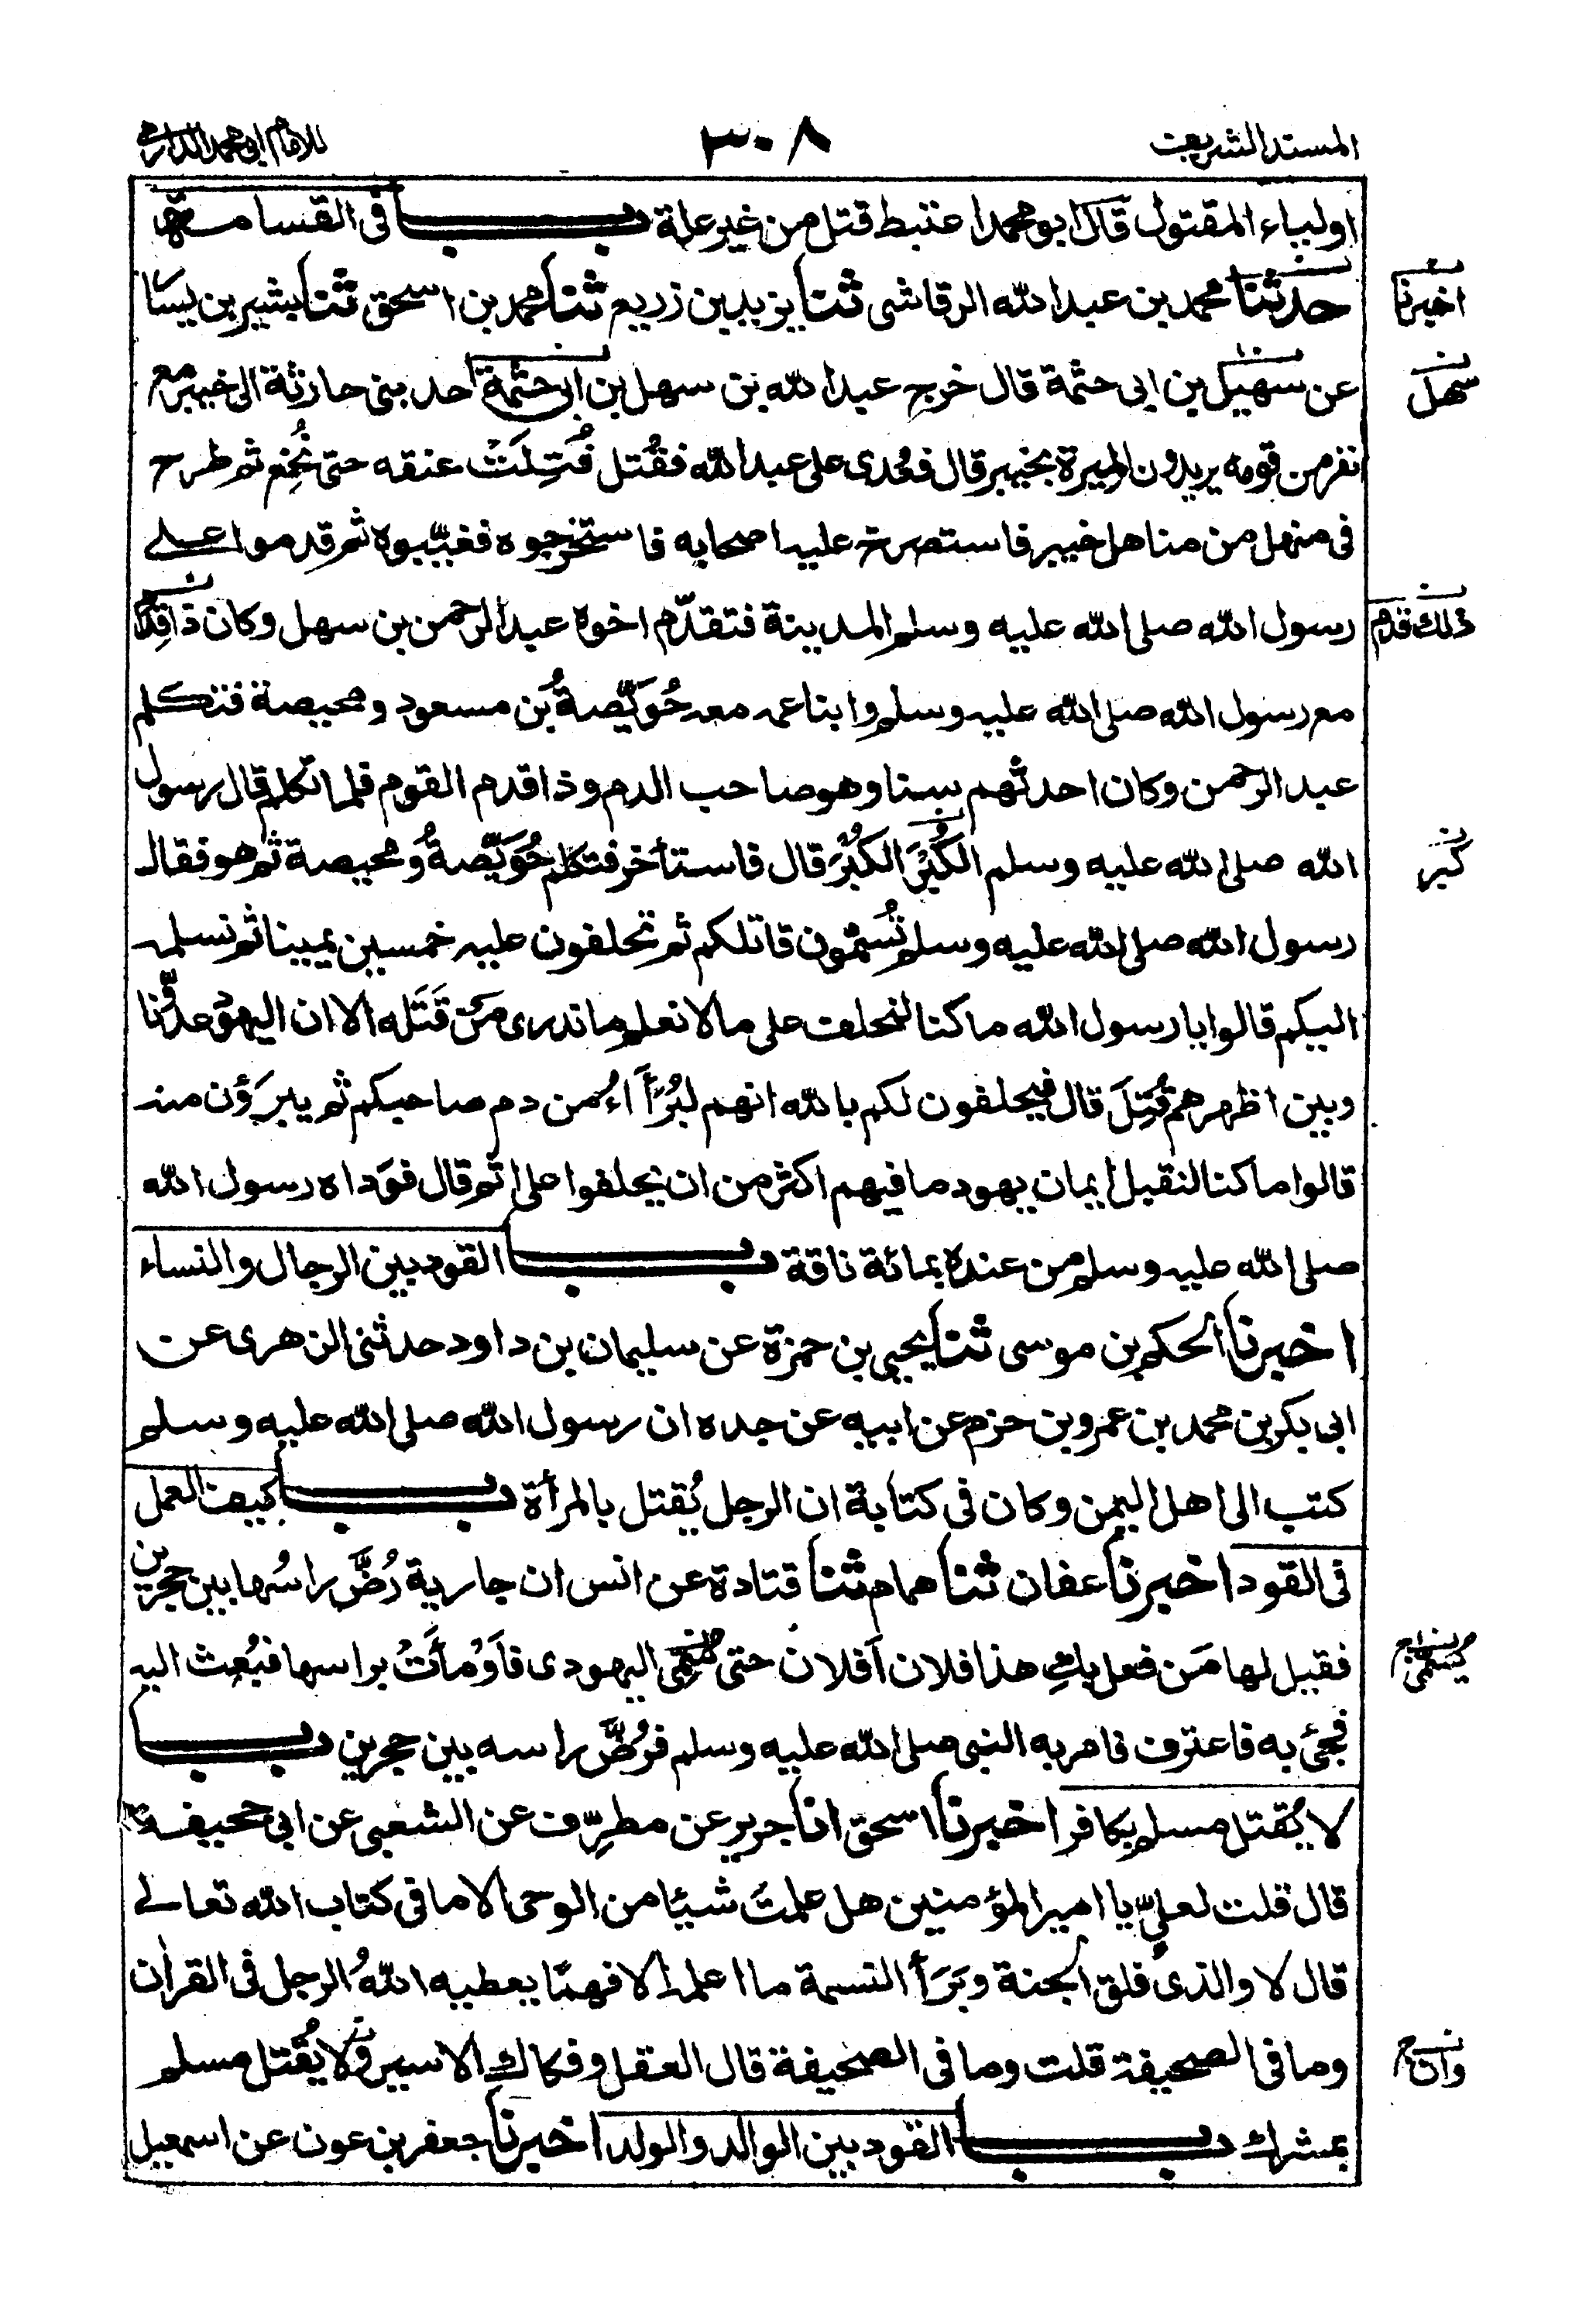 المسند الشريف ٣٠٨ للامام ابي محمد الدارمي
اولياء المقتول قال ابو محمد اعتبط قتل من غير علة باب في القسامة
حدثنا محمد بن عبد الله الرقاشى ثنا يزيد بن زريع ثنا محمد بن اسحق ثنا بشير بن يسار
اخبرنا
عن سهيل بن ابى حثمة قال خرج عبد الله بن سهل بن ابى حثمة احد بنى حارثة الى خيبر مع
سهل
نفر من قومه يريدون الميرة بخيبر قال فعُدى على عبد الله فقُتل فُتِلَتْ عنقه حتى نُخِع ثم طرح
فى منهل من مناهل خيبر فاستصرخ عليه اصحابه فاستخرجوه فغيّبوه ثم قدموا على
رسول الله صلى الله عليه وسلم المدينة فتقدّم اخوه عبد الرحمن بن سهل وكان ذاقِدَم
ذلك قدم
مع رسول الله صلى الله عليه وسلم وابنا عمه معه حُوَيّصةُ بن مسعود ومحيصة فتكلم
عبد الرحمن وكان احدثهم سنا وهو صاحب الدم وذا قدم القوم فلما تكلم قال رسول
الله صلى الله عليه وسلم الكُبْرَ الكُبْرَ قال فاستأخر فتكلم حُوَيّصةُ ومحيصة ثم هو فقال
كبر
رسول الله صلى الله عليه وسلم تُسَمّون قاتلكم ثم تحلفون عليه خمسين يمينا ثم نسلمه
اليكم قالوا يا رسول الله ما كنا لنحلف على ما لا نعلم ما ندرى مَن قَتَله الا ان اليهود عدوّنا
وبين اظهرهم قُتِلَ قال فيحلفون لكم بالله انهم لبُرَأاءُ من دم صاحبكم ثم يبرَؤن منه
قالوا ما كنا لنقبل ايمان يهود ما فيهم اكثر من ان يحلفوا على اثم قال فوَداه رسول الله
صلى الله عليه وسلم من عنده بمائة ناقة باب القود بين الرجال والنساء
اخبرنا الحكم بن موسى ثنا يحيى بن حمزة عن سليمان بن داود حدثنى الزهرى عن
ابى بكر بن محمد بن عمرو بن حزم عن ابيه عن جده ان رسول الله صلى الله عليه وسلم
كتب الى اهل اليمن وكان فى كتابة ان الرجل يُقتل بالمرأة باب كيف العمل
فى القود اخبرنا عفان ثنا همام ثنا قتادة عن انس ان جارية رُضَّ راسُها بين حجرين
فقيل لها مَن فعل بكِ هذا فلان أفلان حتى اليهودى فاَوْمأَتْ براسها فبُعِث اليه
فجئ به فاعترف فامر به النبى صلى الله عليه وسلم فرُضَّ راسه بين حجرين باب
لا يُقتل مسلم بكافر اخبرنا اسحق انا جرير عن مطرِّف عن الشعبى عن ابى جحيفة
قال قلت لعلىّ يا امير المؤمنين هل علمتَ شيئا من الوحى الا ما فى كتاب الله تعالى
قال لا والذى فلق الجنة وبَرَأ النسمة ما اعلمه الا فهمًا يعطيه اللهُ الرجل فى القرآن
وما فى الصحيفة قلت وما فى الصحيفة قال العقل وفكاك الاسير ولا يُقتل مسلم
وان
بمشرك باب القود بين الوالد والولد اخبرنا جعفر بن عون عن اسمعيل